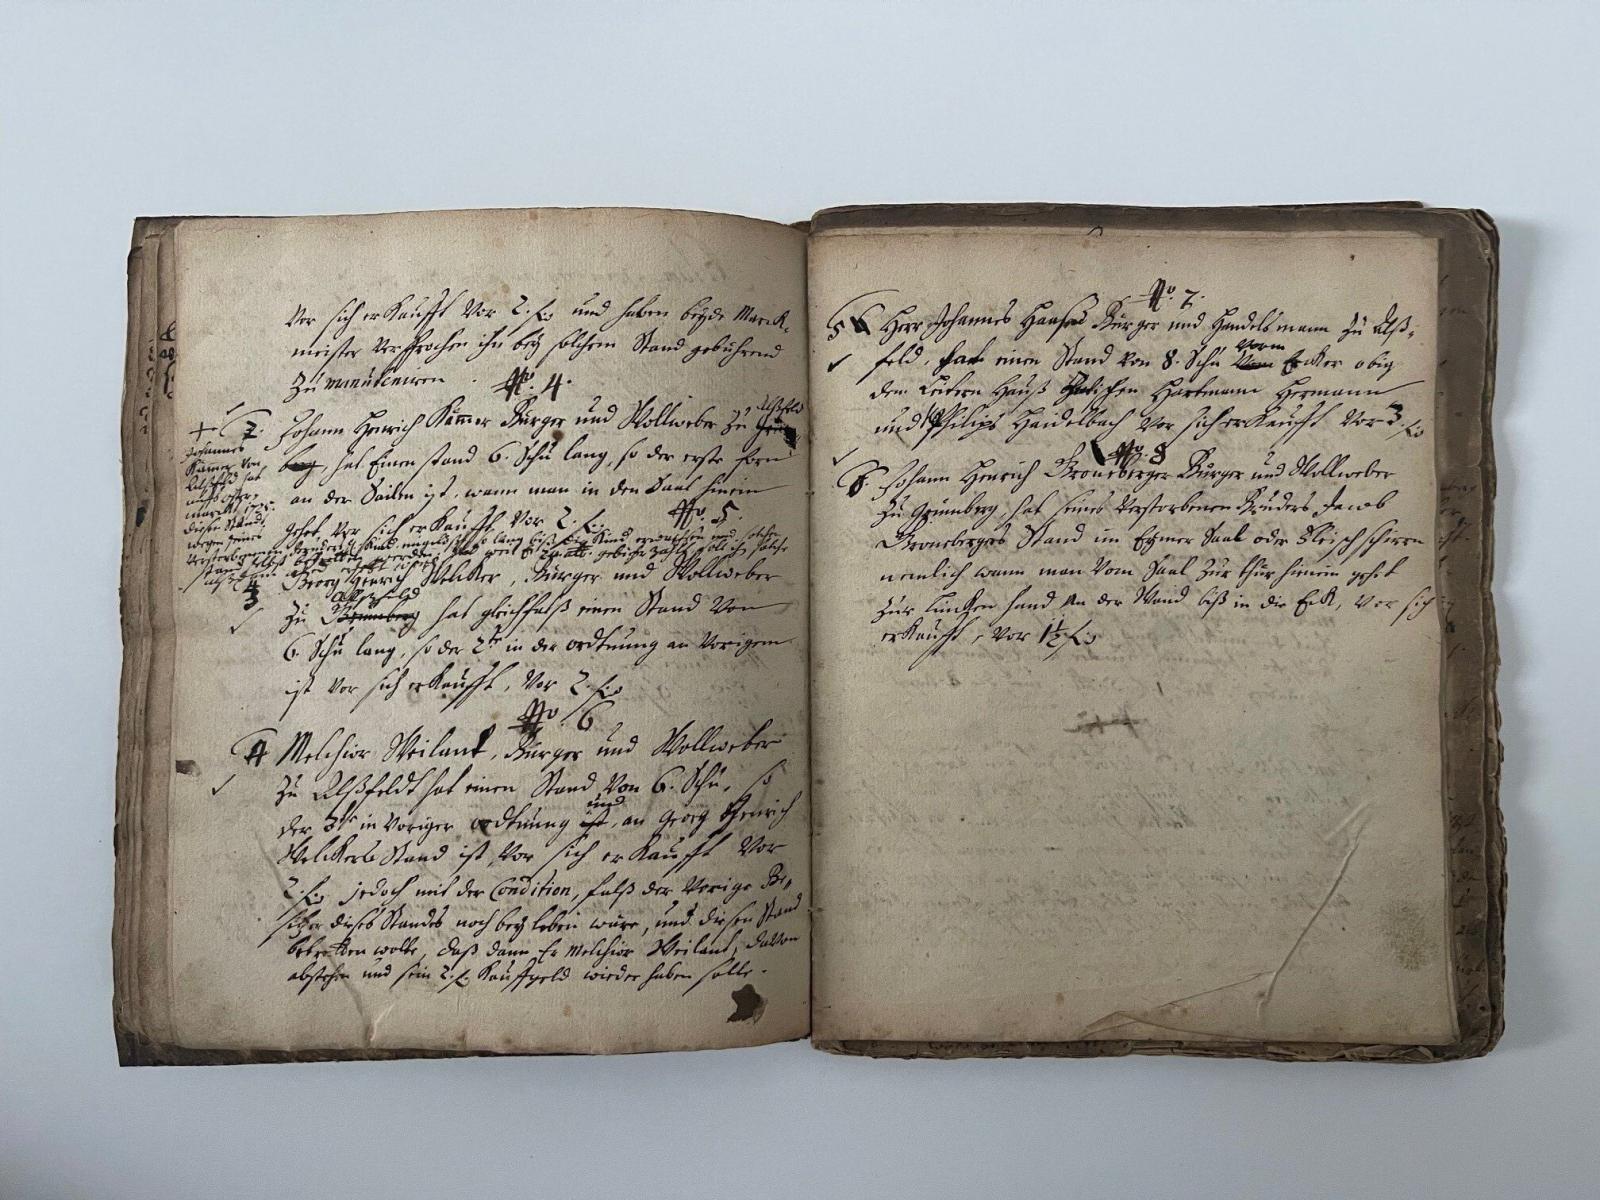 Vor sich erKaufft Vor 2. f. und haben beyde Marck-
meister Versprochen ihn bey solchem Stand gebührend
Zu manuteniren.
No. 4.
2. Johann Henrich Kämmer Bürger und Wollweber zu Alßfeld
hat Einen stand 6. Schu lang, so der erste forn
an der Seiten ist, wann man in den Saal hinein
gehet, Vor sich erKaufft Vor 2. f.
Johannes
Kämer Von
Alßfeld hat
marckt 1725.
diesen Stand
wegen seines
Verstorbenen Bruders
No. 5.
3 Georg Henrich Welcker, Bürger und Wollweber
Alsfeld
zu Grünberg hat gleichfalß einen Stand Von
6. Schu lang, so der 2te in der ordtnung an Vorigem
ist Vor sich erKaufft, Vor 2. f.
No. 6
4 Melchior Weilant, Bürger und Wollweber
zu Alßfeldt hat einen Stand Von 6. Schu, so
und
der 3te in Voriger ordtnung ist, an Georg Henrich
Welckers Stand ist, Vor sich erKaufft Vor
2. f. jedoch mit der Condition, falß der Vorige Be-
sitzer dieses Standes noch bey leben wäre, und diesen Stand
betretten wolte, daß dann Er Melchior Weilant, davon
abstehen und sein 2. f. Kauffgeld wieder haben solle.
No. 7.
5 6 Herr Johannes Haaß Bürger und Handelsmann zu Alß-
Vorm
feld, hat einen Stand von 8. Schu Vom Ercker obig
dem Leitern Hauß Zwischen Hartmann Hermann
und Philips Haidelbach Vor sich erKaufft Vor 3. f.
No. 8
6. Johann Henrich Groneberger Bürger und Wollweber
zu Grünberg, hat seines Verstorbenen Bruders Jacob
Gronebergers Stand im Saal oder Fleischschirn
nemlich wann man Vom Saal zur thür hinein gehet
zur lincken hand an der Wand biß in die Eck, Vor sich
erKaufft, Vor 1½ f.